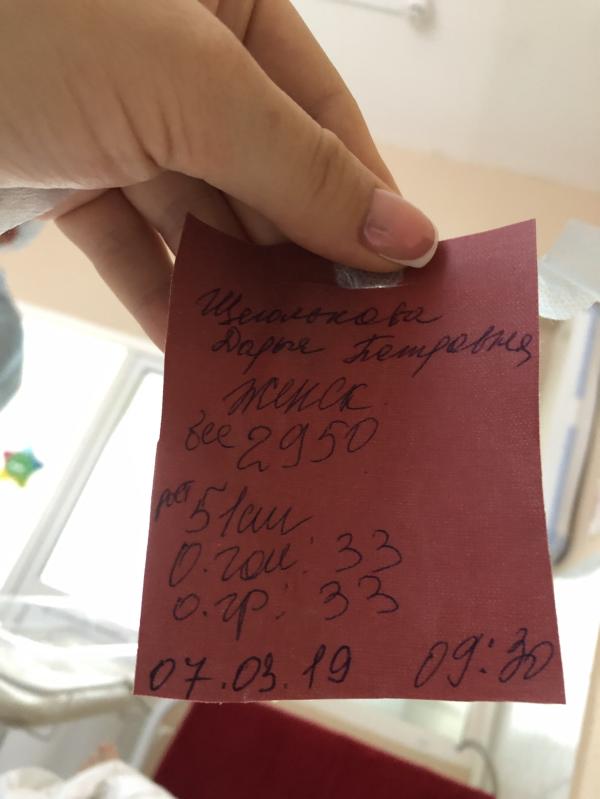 Щеголькова
Дарья Петровна
женск
вес 2950
рост 51см
О.гол: 33
о.гр: 33
07.03.19 09:30